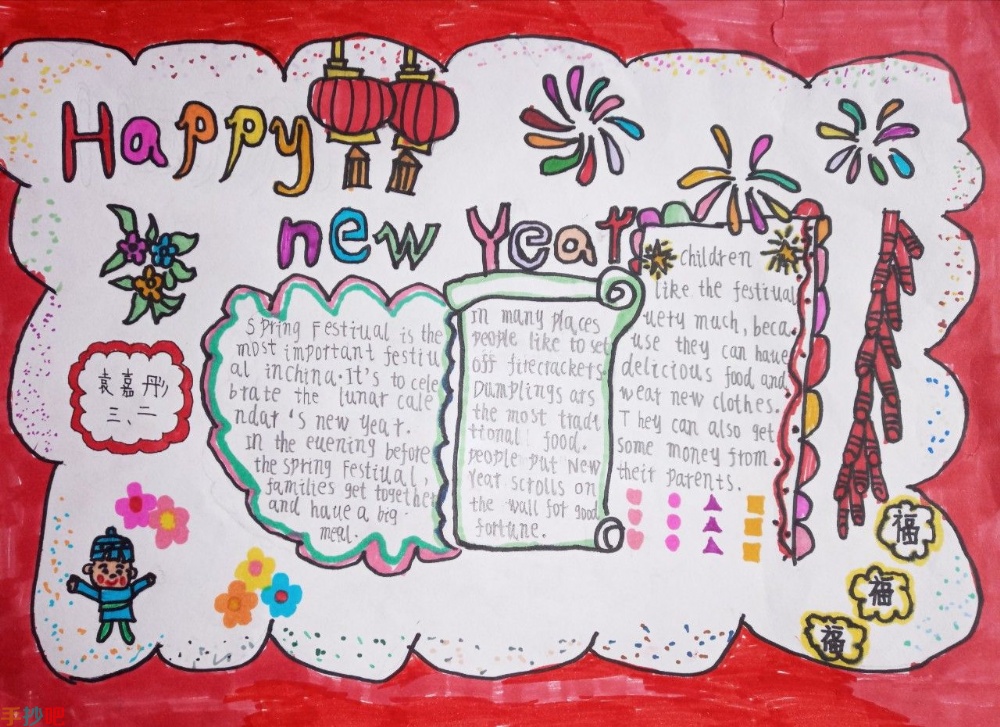 Happy
new Year
袁嘉彤
三、二
Spring Festival is the
most important festiv
al in China. It's to cele
brate the lunar cale
ndar 's new year.
In the evening before
the Spring Festival,
families get together
and have a big
meal.
In many places
people like to set
off firecrackers
Dumplings ars
the most tradi
tional food.
people put New
Year scrolls on
the wall for good
fortune.
children
like the festival
very much, beca.
use they can have
delicious food and
wear new clothes.
They can also get
some money from
their parents.
福
福
福
手抄吧